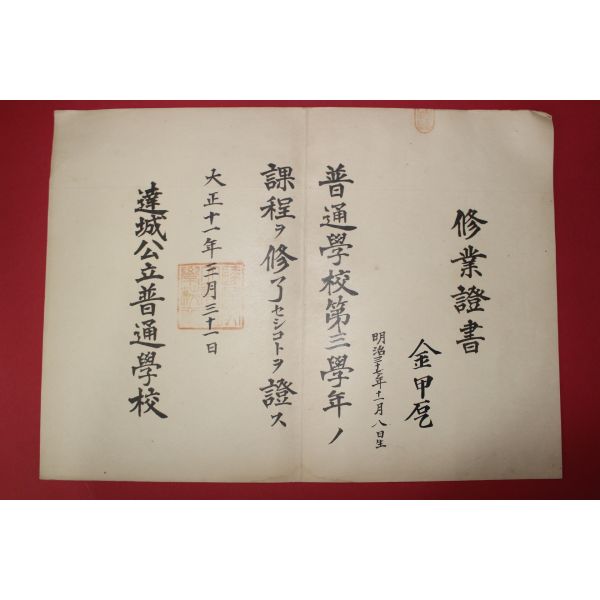 修業證書
金甲
明治三十七年十一月八日生
普通學校第三學年ノ
課程ヲ修了セシコトヲ證ス
大正十一年三月三十一日
達城公立普通學校